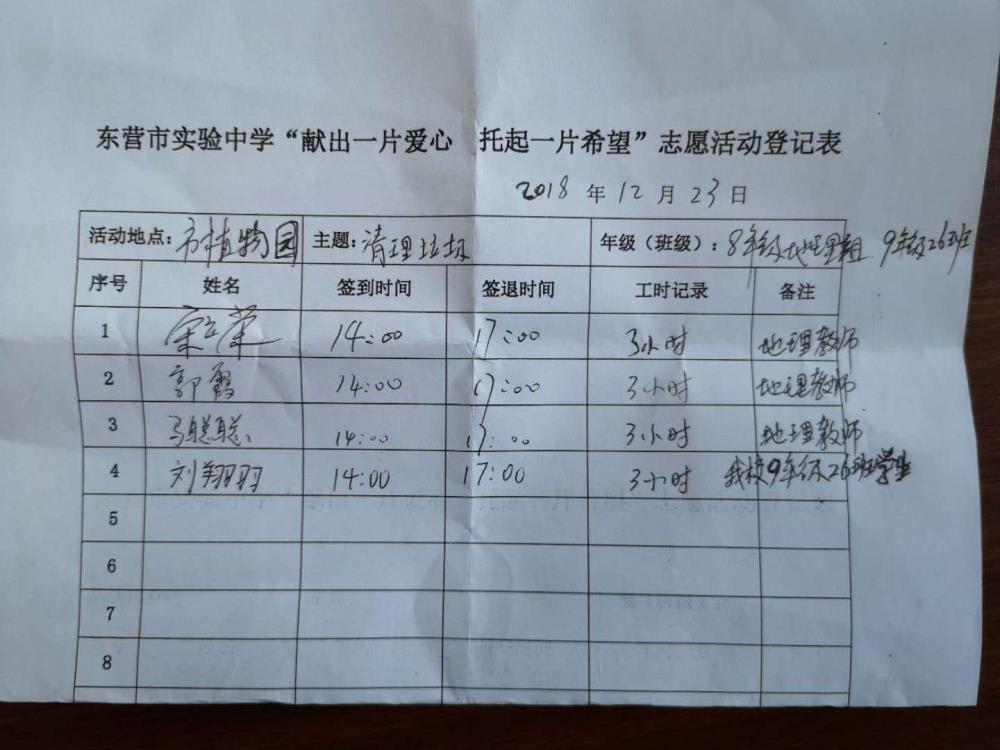 东营市实验中学“献出一片爱心 托起一片希望”志愿活动登记表
2018 年 12 月 23 日
活动地点：市植物园 主题：清理垃圾 年级（班级）：8年级地理组 9年级26班
序号 姓名 签到时间 签退时间 工时记录 备注
1 14:00 17:00 3小时 地理教师
2 郭霞 14:00 17:00 3小时 地理教师
3 马聪聪 14:00 17:00 3小时 地理教师
4 刘翔羽 14:00 17:00 3小时 我校9年级26班学生
5
6
7
8